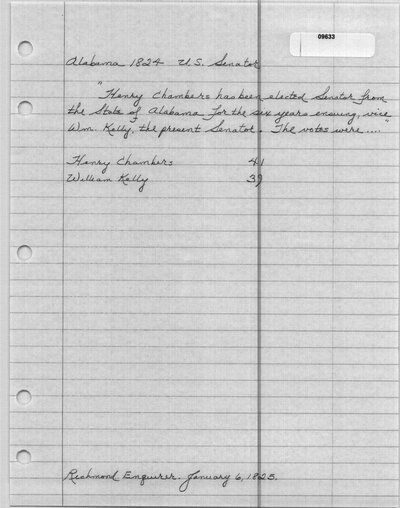 09633
Alabama 1824 U.S. Senator
"Henry Chambers has been elected Senator from
the State of Alabama for the six years ensuing, vice
Wm. Kelly, the present Senator. The votes were...."
Henry Chambers 41
William Kelly 39
Richmond Enquirer. January 6, 1825.